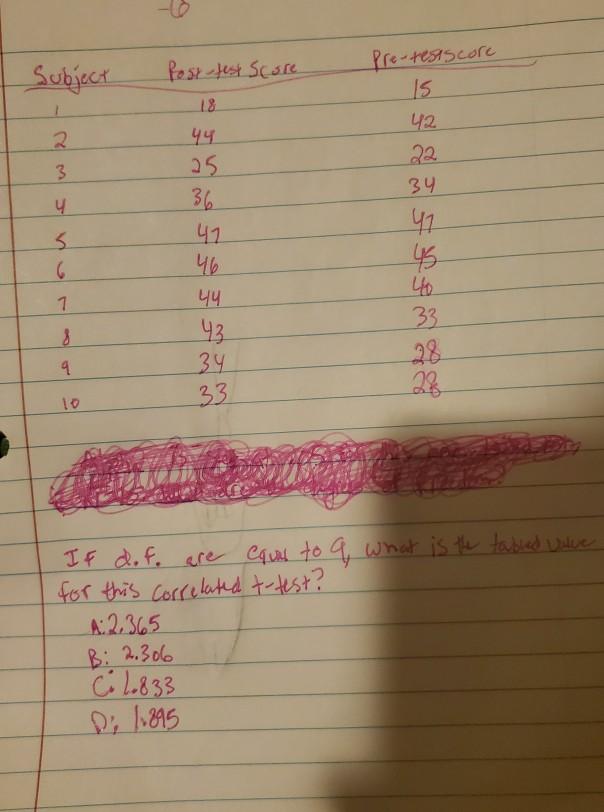 -6
Subject Post-test Score Pre-test score
1 18 15
2 44 42
3 25 22
4 36 34
5 47 47
6 46 45
7 44 40
8 43 33
9 34 28
10 33 28
If d.f. are equal to 9, what is the tabled value
for this correlated t-test?
A: 2.365
B: 2.306
C: 1.833
D: 1.895